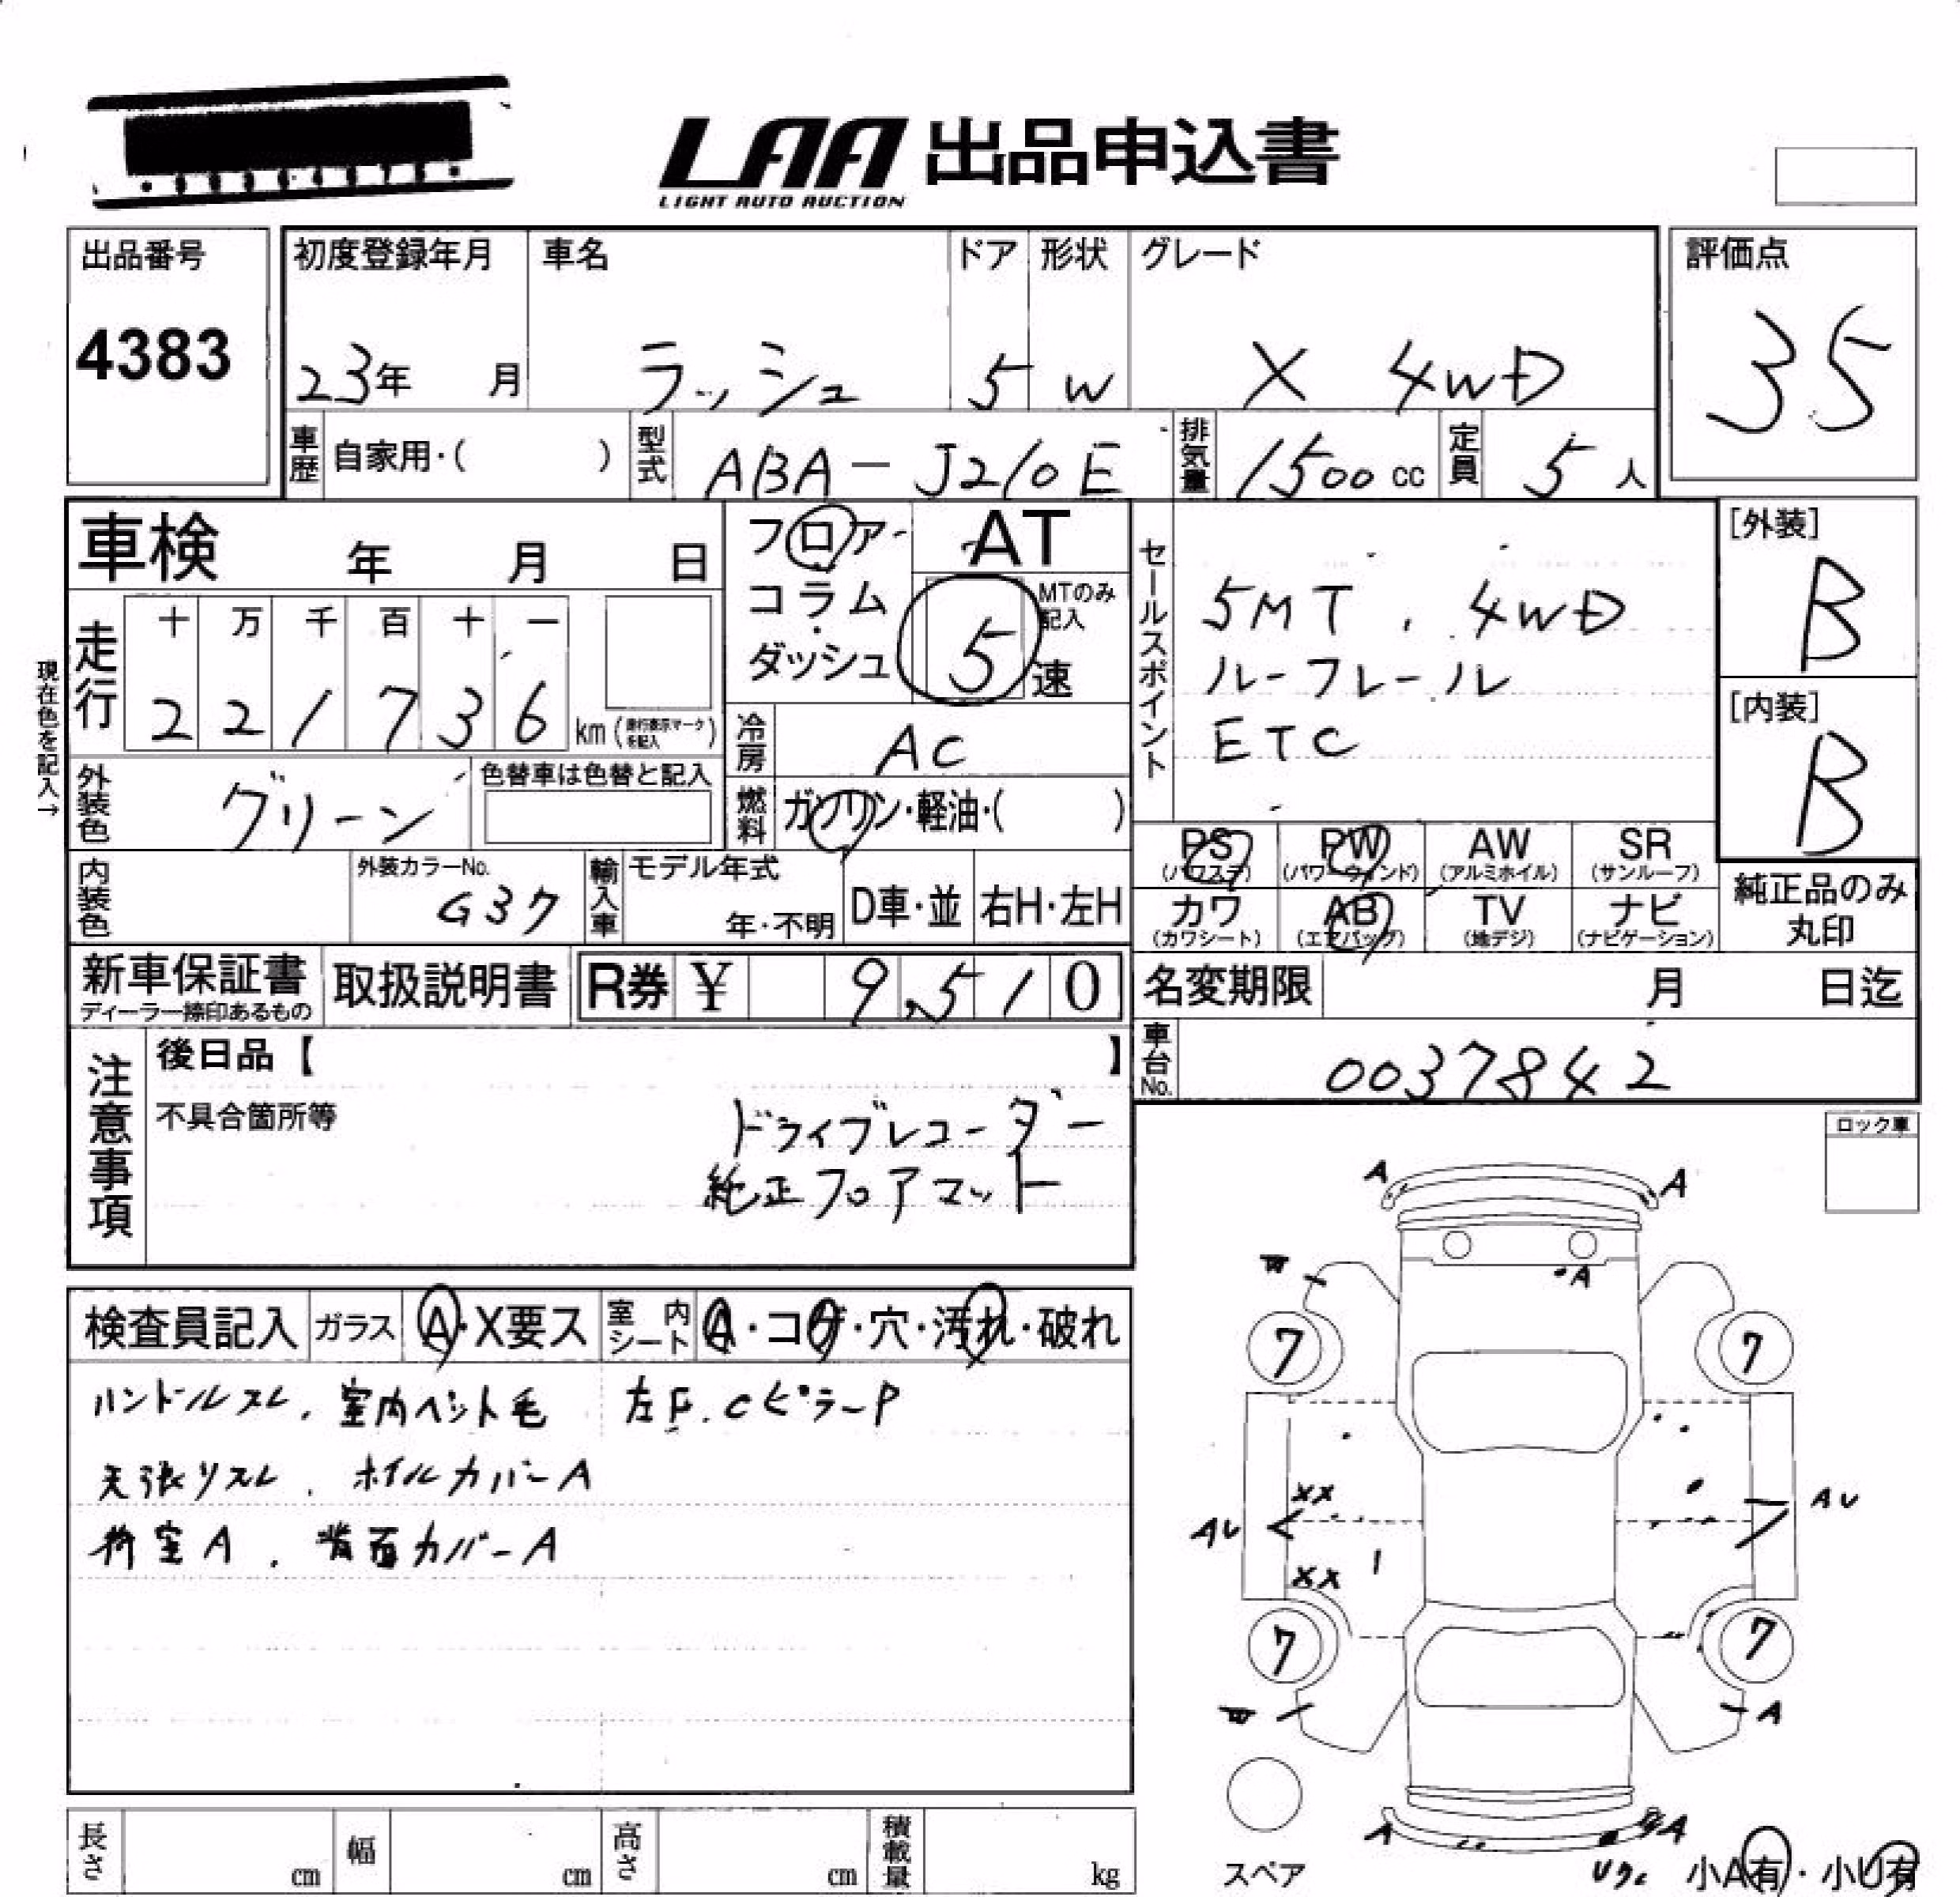 LAA 出品申込書
LIGHT AUTO AUCTION
出品番号
4383
初度登録年月
23年 月
車名
ラッシュ
ドア
5
形状
W
グレード
X 4WD
評価点
35
車歴 自家用・( )
型式 ABA-J210E
排気量 1500 cc
定員 5 人
車検 年 月 日
フロア・
コラム
・
ダッシュ
AT
5 速
MTのみ
記入
セールスポイント
5MT, 4WD
ルーフレール
ETC
[外装]
B
[内装]
B
現在色を記入→
走行
十 万 千 百 十 一
2 2 1 7 3 6 km (走行表示マークを記入)
冷房 AC
外装色 グリーン
色替車は色替と記入
燃料 ガソリン・軽油・( )
PS
(パワステ)
PW
(パワーウィンド)
AW
(アルミホイル)
SR
(サンルーフ)
カワ
(カワシート)
AB
(エアバッグ)
TV
(地デジ)
ナビ
(ナビゲーション)
純正品のみ
丸印
内装色
外装カラーNo.
G37
輸入車
モデル年式
年・不明
D車・並
右H・左H
新車保証書
ディーラー捺印あるもの
取扱説明書
R券 ¥ 9,510
名変期限 月 日迄
車台No. 0037842
注意事項
後日品【 】
不具合箇所等
ドライブレコーダー
純正フロアマット
ロック車
検査員記入
ガラス A・X要ス
室内シート A・コゲ・穴・汚れ・破れ
ハンドルスレ, 室内ペット毛 左F.CピラーP
天張リスレ, ホイルカバーA
荷室A, 背面カバーA
A A
A
7 7
XX
AU AU
XX
7 7
A
A A
スペア
小A有・小U有
長さ cm
幅 cm
高さ cm
積載量 kg